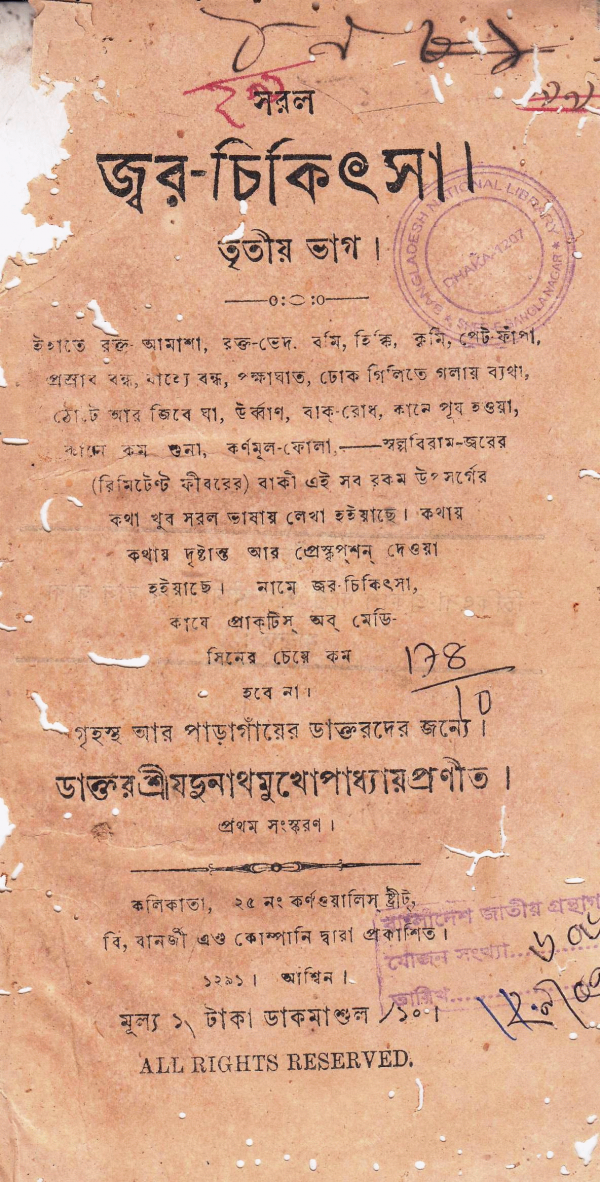 সরল
জ্বর-চিকিৎসা।
তৃতীয় ভাগ।
BANGLADESH NATIONAL LIBRARY
DHAKA-1207
ইহাতে রক্ত-আমাশা, রক্ত-ভেদ, বমি, হিক্কি, কৃমি, পেট-ফাঁপা,
প্রস্রাব বন্ধ, বাহ্যে বন্ধ, পক্ষাঘাত, ঢোক গিলিতে গলায় ব্যথা,
ঠোঁটে আর জিবে ঘা, বাক্-রোধ, কানে পূয হওয়া,
কানে কম শুনা, কর্ণমূল-ফোলা,—স্বল্পবিরাম-জ্বরের
(রিমিটেণ্ট ফীবরের) বাকী এই সব রকম উপসর্গের
কথা খুব সরল ভাষায় লেখা হইয়াছে। কথায়
কথায় দৃষ্টান্ত আর প্রেস্কৃপ্শন্ দেওয়া
হইয়াছে। নামে জ্বর-চিকিৎসা,
কাযে প্রাক্টিস্ অব্ মেডি-
সিনের চেয়ে কম
হবে না।
178/10
গৃহস্থ আর পাড়াগাঁয়ের ডাক্তরদের জন্যে।
ডাক্তর শ্রীযদুনাথ মুখোপাধ্যায় প্রণীত।
প্রথম সংস্করণ।
কলিকাতা, ২৫ নং কর্ণওয়ালিস্ ষ্ট্রীট্,
বি, বানর্জী এণ্ড কোম্পানি দ্বারা প্রকাশিত।
১২৯১। আশ্বিন।
মূল্য ১৲ টাকা ডাকমাশুল ৵১০।
ALL RIGHTS RESERVED.
বাংলাদেশ জাতীয় গ্রন্থাগার
যোজন সংখ্যা
তারিখ